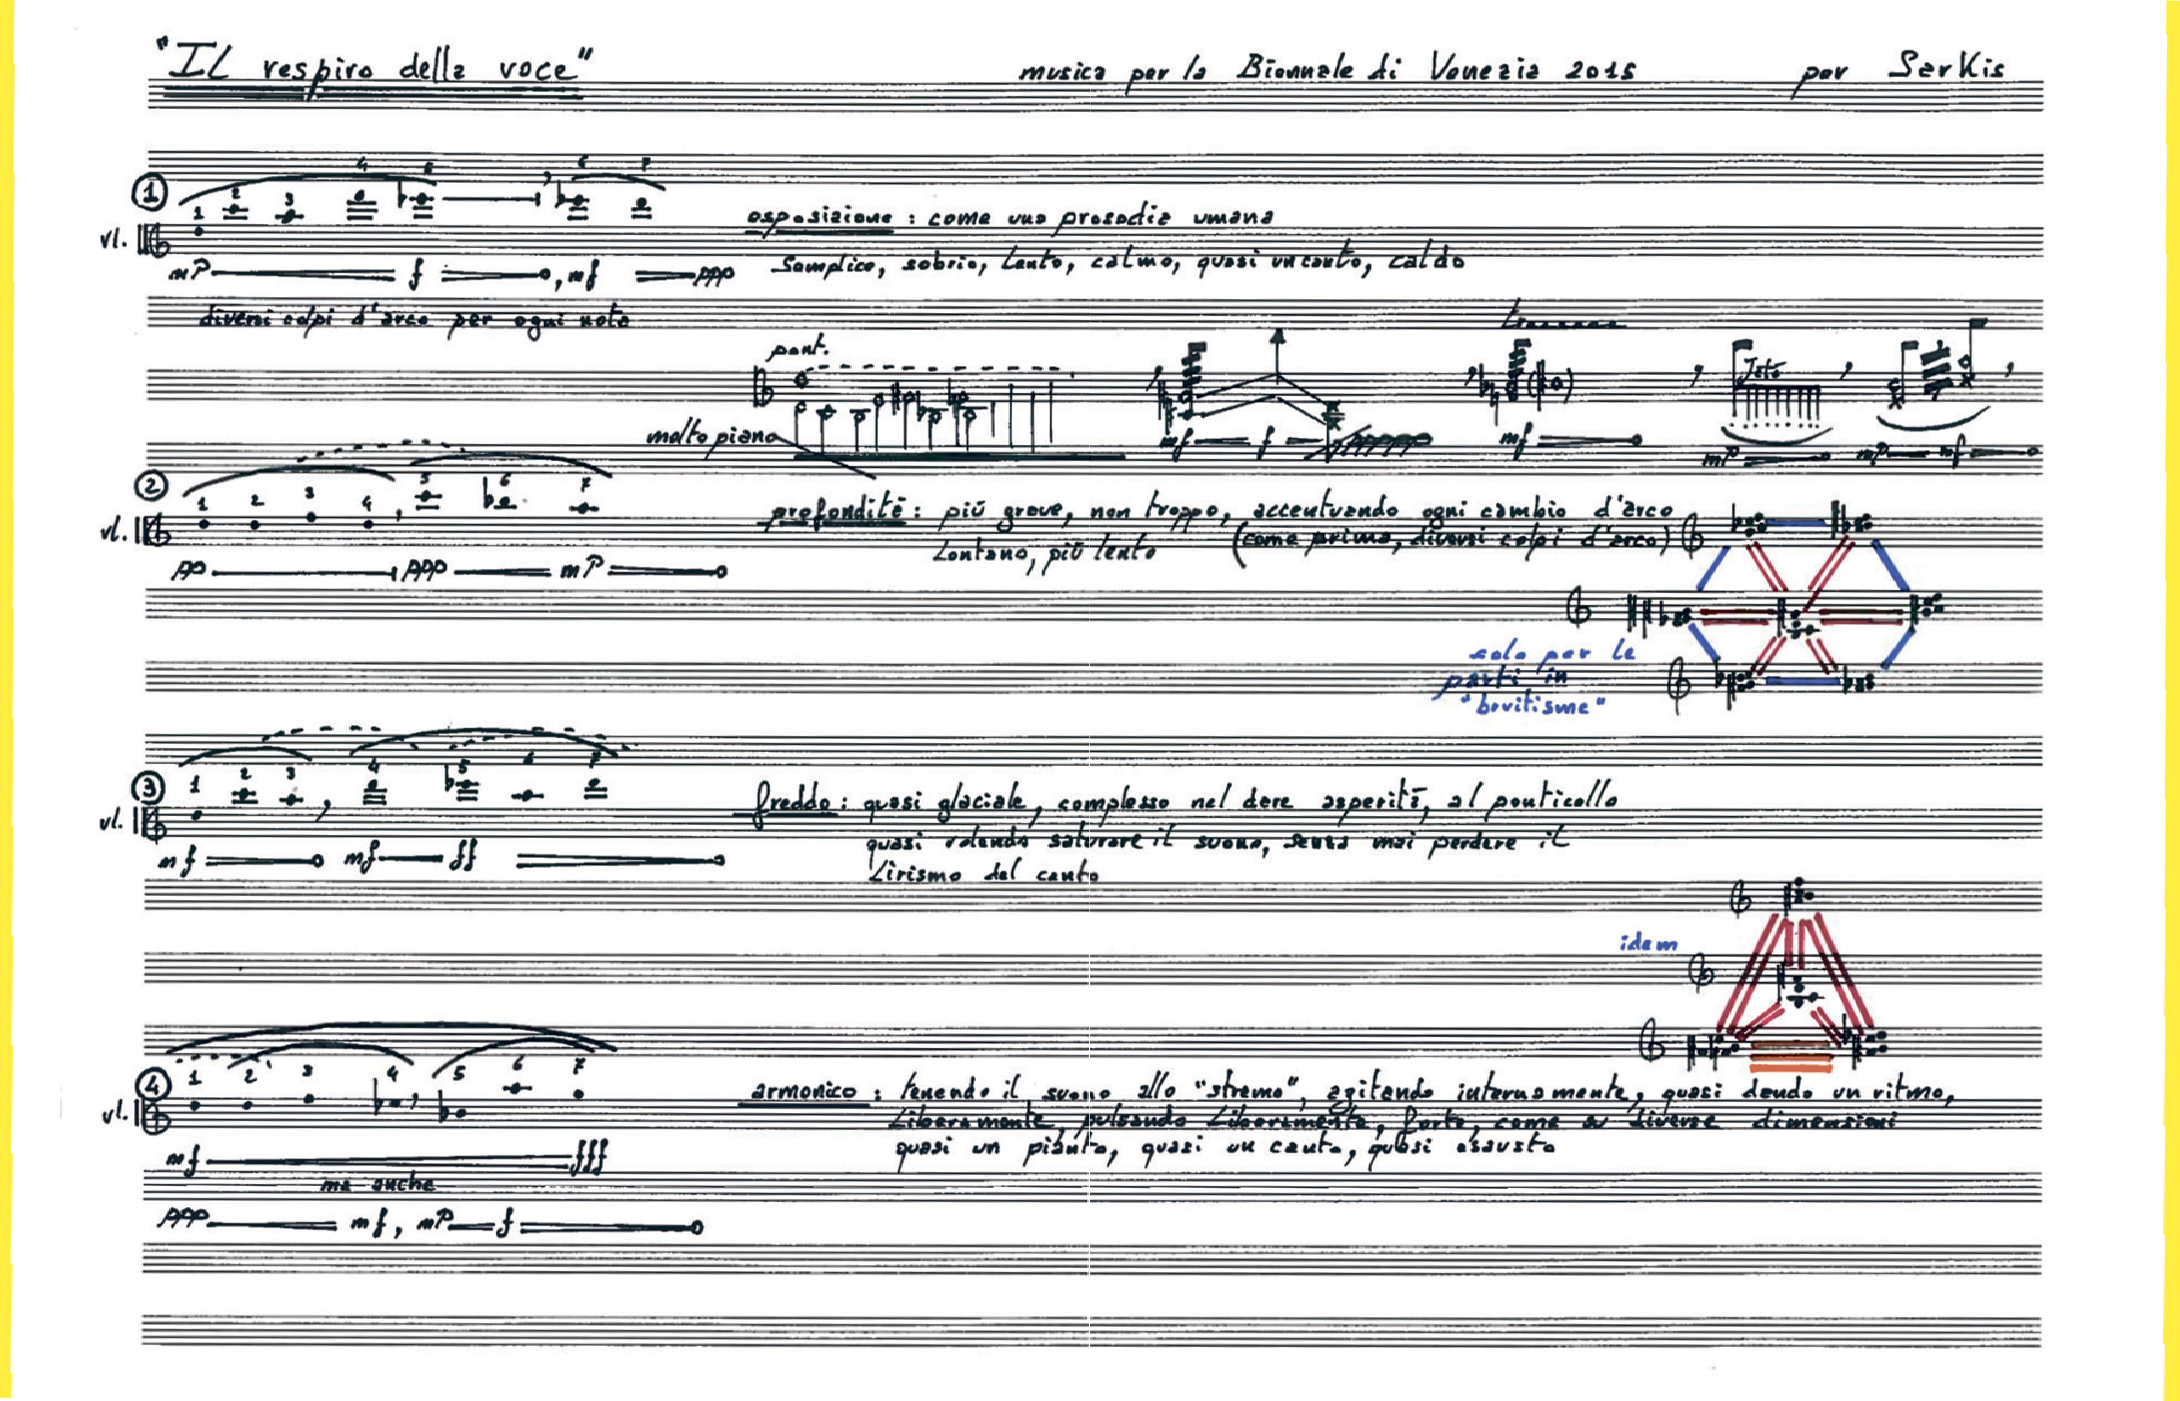 "IL respiro della voce" musica per la Biennale di Venezia 2015 per Sarkis
1
1 2 3 4 5 6 7
vl.
esposizione : come una prosodia umana
mP f , mf ppp Semplice, sobrio, Lento, calmo, quasi un canto, caldo
diversi colpi d'arco per ogni nota
pont.
Tasto
molto piano
mf f mf mP mP mf
2
1 2 3 4 5 6 7
vl.
profondità : più grave, non troppo, accentuando ogni cambio d'arco
Lontano, più lento (come prima, diversi colpi d'arco)
PP PPP mP
solo per le
parti in
"bovitisme"
3
1 2 3 4 5 6 7
vl.
freddo : quasi glaciale, complesso nel dare asperità, al ponticello
quasi volendo saturare il suono, senza mai perdere il
mf mf ff
Lirismo del canto
idem
4
1 2 3 4 5 6 7
vl.
armonico : tenendo il suono allo "stremo", agitando internamente, quasi dando un ritmo,
Liberamente, pulsando Liberamente, forte, come su diverse dimensioni
quasi un pianto, quasi un canto, quasi esausto
mf fff
ma anche
PPP mf, mP f